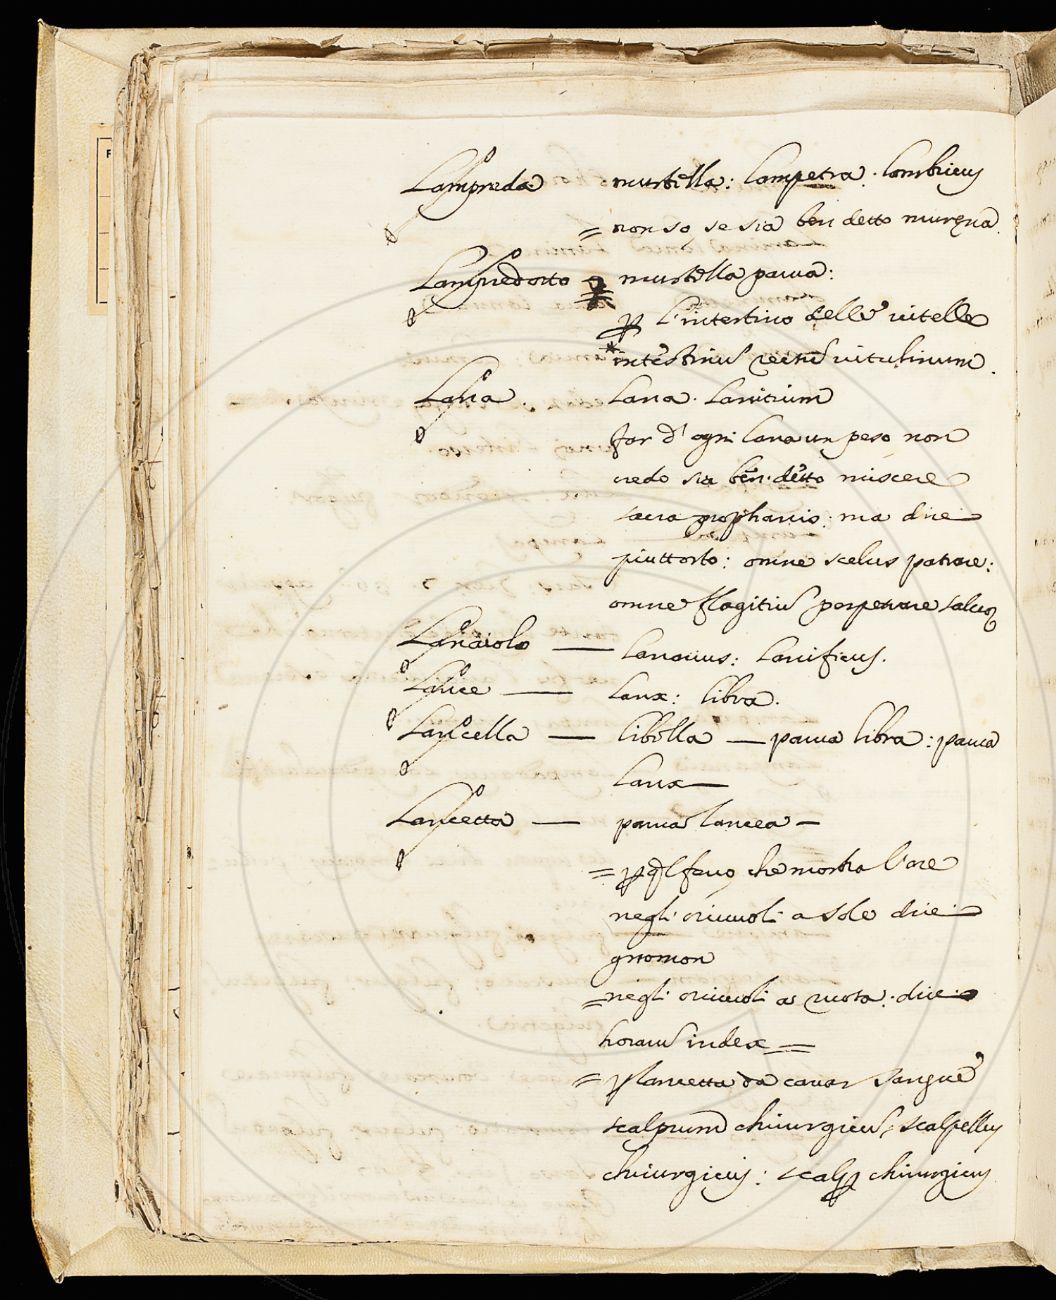 Lampreda mustella: lampetra: lombricus
= non so se sia ben detto muręna.
Lampredotto mustella parua:
p l'intestino delle vitelle
* intestinū vitulinum.
Lana. Lana. Lanitium
far d'ogni lana un peso non
credo sia ben detto miscere
sacra prophanis: ma direi
piuttosto: omne scelus patrare:
omne flagitiū perpetrare
Lanaiolo — Lanarius: Lanificus.
Lance — Lanx: libra.
Lancella — libella — parua libra: parua
Lanx —
Lancetta — parua lancea —
= p q̄l ferro che mostra l'ore
negli oriuuoli a sole direi
gnomon
= negli oriuuoli a ruota: direi
horarū index =
= p lancetta da cavar sangue
scalprum chirurgicū, scalpellus
chirurgicus: chirurgicus